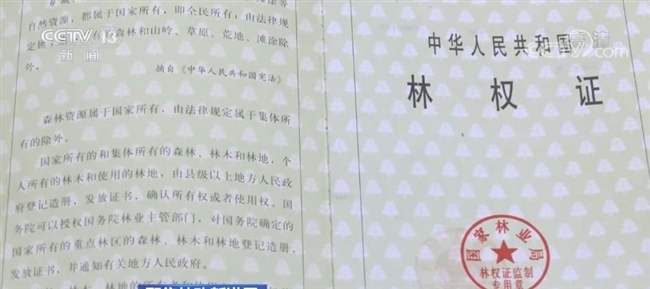 自然资源,都属于国家所有,即全民所有;由法律规
森林和山岭、草原、荒地、滩涂除
外。
摘自《中华人民共和国宪法》
森林资源属于国家所有,由法律规定属于集体所
有的除外。
国家所有的和集体所有的森林、林木和林地,个
人所有的林木和使用的林地,由县级以上地方人民政
府登记造册,发放证书,确认所有权或者使用权。国
务院可以授权国务院林业主管部门,对国务院确定的
国家所有的重点林区的森林、林木和林地登记造册,
发放证书,并通知有关地方人民政府。
CCTV 13
新闻
中华人民共和国
林权证
国家林业局
林权证监制
专用章